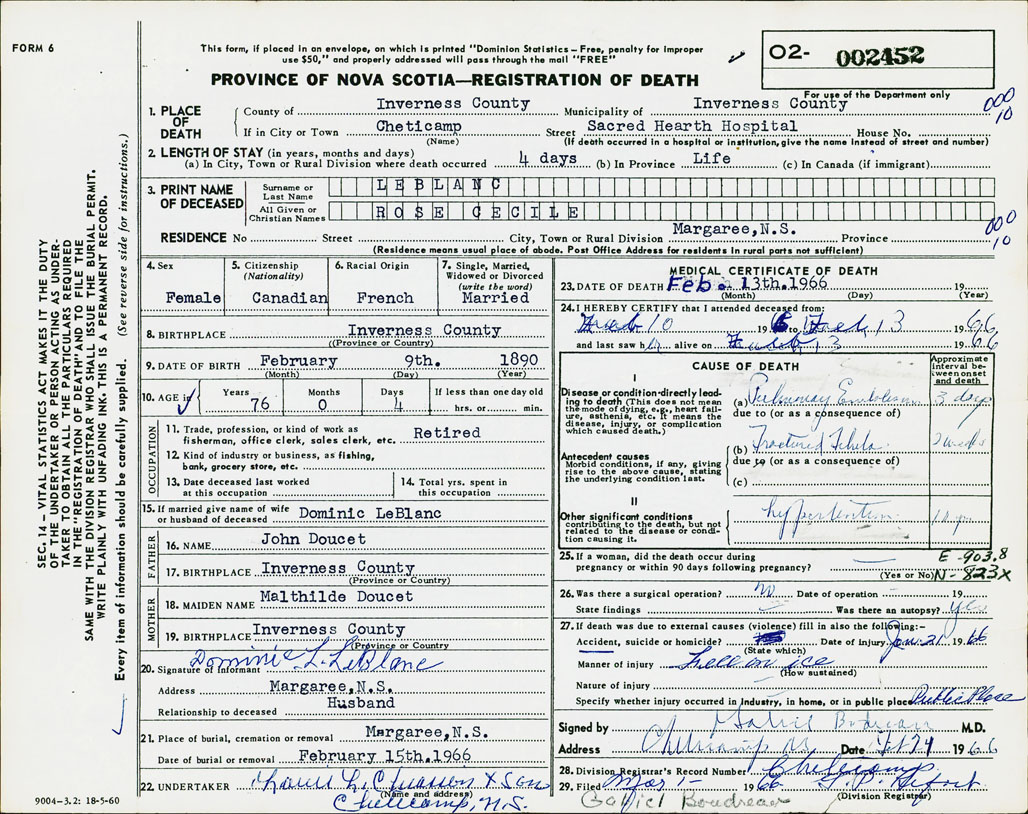 FORM 6
This form, if placed in an envelope, on which is printed "Dominion Statistics – Free, penalty for improper
use $50," and properly addressed will pass through the mail "FREE"
O2- 002452
PROVINCE OF NOVA SCOTIA—REGISTRATION OF DEATH
For use of the Department only
1. PLACE OF DEATH County of Inverness County Municipality of Inverness County 000 10
If in City or Town Cheticamp Street Sacred Hearth Hospital House No.
(Name) (If death occurred in a hospital or institution, give the name instead of street and number)
2. LENGTH OF STAY (in years, months and days)
(a) In City, Town or Rural Division where death occurred 4 days (b) In Province Life (c) In Canada (if immigrant)
3. PRINT NAME OF DECEASED Surname or Last Name LEBLANC
All Given or Christian Names ROSE CECILE
RESIDENCE No Street City, Town or Rural Division Margaree,N.S. Province 000 10
(Residence means usual place of abode. Post Office Address for residents in rural parts not sufficient)
4. Sex Female
5. Citizenship (Nationality) Canadian
6. Racial Origin French
7. Single, Married, Widowed or Divorced (write the word) Married
8. BIRTHPLACE Inverness County
(Province or Country)
9. DATE OF BIRTH February 9th. 1890
(Month) (Day) (Year)
10. AGE in Years 76 Months 0 Days 4 If less than one day old hrs. or min.
OCCUPATION
11. Trade, profession, or kind of work as fisherman, office clerk, sales clerk, etc. Retired
12. Kind of industry or business, as fishing, bank, grocery store, etc.
13. Date deceased last worked at this occupation
14. Total yrs. spent in this occupation
15. If married give name of wife or husband of deceased Dominic LeBlanc
FATHER
16. NAME John Doucet
17. BIRTHPLACE Inverness County
(Province or Country)
MOTHER
18. MAIDEN NAME Malthilde Doucet
19. BIRTHPLACE Inverness County
(Province or Country)
20. Signature of Informant Dominic L. LeBlanc
Address Margaree,N.S.
Relationship to deceased Husband
21. Place of burial, cremation or removal Margaree,N.S.
Date of burial or removal February 15th.1966
22. UNDERTAKER L. Chiasson & Son
(Name and address)
Cheticamp, N.S.
9004-3.2: 18-5-60
MEDICAL CERTIFICATE OF DEATH
23. DATE OF DEATH Feb. 13th.1966
(Month) (Day) (Year)
24. I HEREBY CERTIFY that I attended deceased from:
Feb 10 196 to Feb 13 1966
and last saw h alive on Feb 13 1966
CAUSE OF DEATH
Approximate interval between onset and death
I
Disease or condition directly leading to death (This does not mean the mode of dying, e.g., heart failure, asthenia, etc. It means the disease, injury, or complication which caused death.)
(a) Pulmonary Embolism 3 days
due to (or as a consequence of)
Antecedent causes
Morbid conditions, if any, giving rise to the above cause, stating the underlying condition last.
(b) Fractured Fibula weeks
due to (or as a consequence of)
(c)
II
Other significant conditions contributing to the death, but not related to the disease or condition causing it.
hypertension 10 yrs
25. If a woman, did the death occur during pregnancy or within 90 days following pregnancy? (Yes or No)
E -903.8
N-823X
26. Was there a surgical operation? No Date of operation 19
State findings Was there an autopsy? yes
27. If death was due to external causes (violence) fill in also the following:–
Accident, suicide or homicide? Date of injury Jan. 21 1966
(State which)
Manner of injury Fell on ice
(How sustained)
Nature of injury
Specify whether injury occurred in industry, in home, or in public place Public Place
Signed by Gabriel Boudreau M.D.
Address Cheticamp NS Date 24 1966
28. Division Registrar's Record Number Cheticamp
29. Filed Mar 1 - 1966
(Division Registrar)
Gabriel Boudreau
SEC. 14 – VITAL STATISTICS ACT MAKES IT THE DUTY
OF THE UNDERTAKER OR PERSON ACTING AS UNDER-
TAKER TO OBTAIN ALL THE PARTICULARS REQUIRED
IN THE "REGISTRATION OF DEATH" AND TO FILE THE
SAME WITH THE DIVISION REGISTRAR WHO SHALL ISSUE THE BURIAL PERMIT.
WRITE PLAINLY WITH UNFADING INK. THIS IS A PERMANENT RECORD.
Every item of information should be carefully supplied. (See reverse side for instructions.)